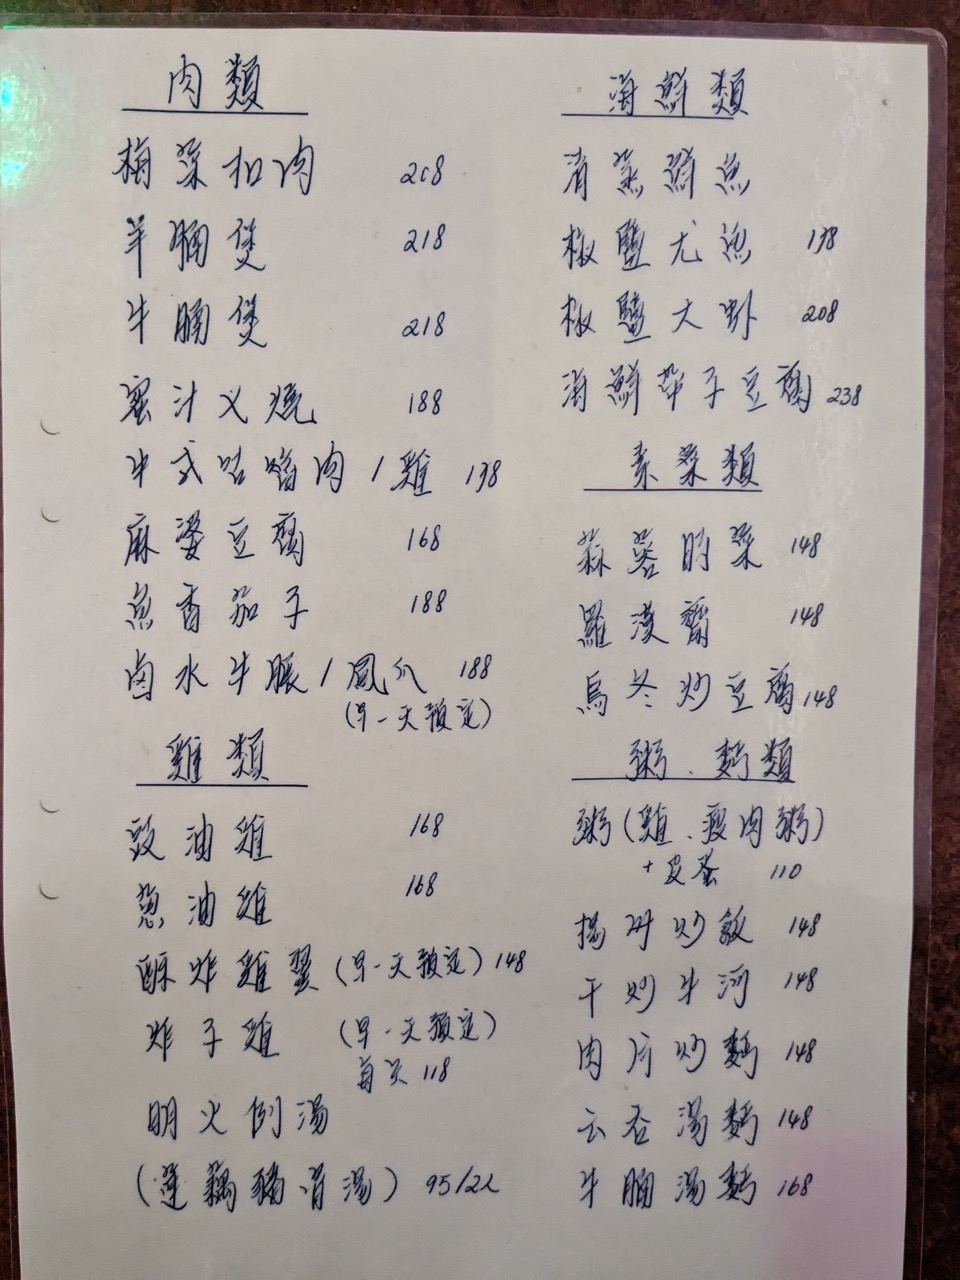 肉類
梅菜扣肉 208
羊腩煲 218
牛腩煲 218
蜜汁义燒 188
中式咕嚕肉/雞 138
麻婆豆腐 168
魚香茄子 188
卤水牛𦟌/鳳爪 188
(早一天預定)
雞類
豉油雞 168
葱油雞 168
酥炸雞翼(早一天預定) 148
炸子雞 (早一天預定)
每隻 118
明火例湯
(蓮藕豬骨湯) 95/2人
海鮮類
清蒸鮮魚
椒鹽尤魚 138
椒鹽大虾 208
海鮮带子豆腐 238
素菜類
蒜蓉时菜 148
羅漢齋 148
烏冬炒豆腐 148
粥、麵類
粥(雞、瘦肉粥)
+皮蛋 110
揚州炒飯 148
干炒牛河 148
肉片炒麵 148
云吞湯麵 148
牛腩湯麵 168